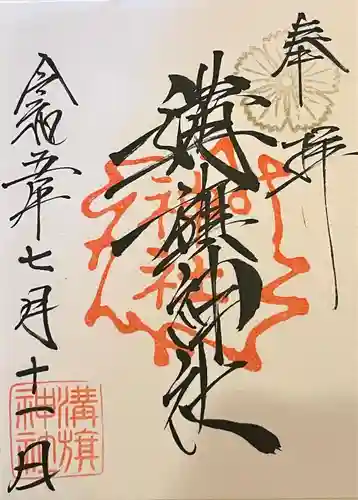 奉拝
溝旗神社
令和五年七月十一日
溝旗
神社